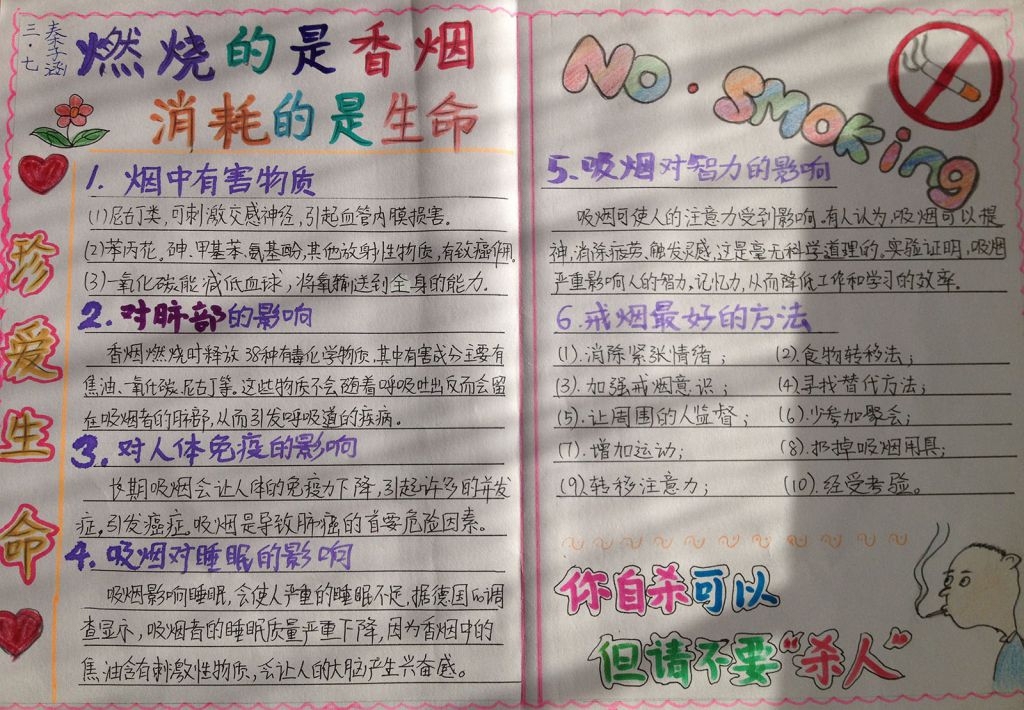 三·七
秦子涵
燃烧的是香烟
消耗的是生命
珍爱生命
1. 烟中有害物质
(1)尼古丁类,可刺激交感神经,引起血管内膜损害。
(2)苯丙花。砷、甲基苯、氨基酚,其他放射性物质,有致癌作用。
(3)一氧化碳能减低血球,将氧输送到全身的能力.
2.对肺部的影响
香烟燃烧时释放38种有毒化学物质.其中有害成分主要有
焦油、氧化碳、尼古丁等。这些物质不会随着呼吸吐出反而会留
在吸烟者的肺部,从而引发呼吸道的疾病。
3.对人体免疫的影响
长期吸烟会让人体的免疫力下降,引起许多的并发
症,引发癌症。吸烟是导致肺癌的首要危险因素。
4.吸烟对睡眠的影响
吸烟影响睡眠,会使人严重的睡眠不足,据德国的调
查显示,吸烟者的睡眠质量严重下降,因为香烟中的
焦油含有刺激性物质,会让人的大脑产生兴奋感。
No·Smoking
5.吸烟对智力的影响
吸烟可使人的注意力受到影响.有人认为,吸烟可以提
神,消除疲劳、触发灵感,这是毫无科学道理的。实验证明,吸烟
严重影响人的智力、记忆力,从而降低工作和学习的效率。
6.戒烟最好的方法
(1).消除紧张情绪; (2).食物转移法;
(3).加强戒烟意识; (4).寻找替代方法;
(5).让周围的人监督; (6).少参加聚会;
(7).增加运动; (8).扔掉吸烟用具;
(9).转移注意力; (10).经受考验。
你自杀可以
但请不要“杀人”